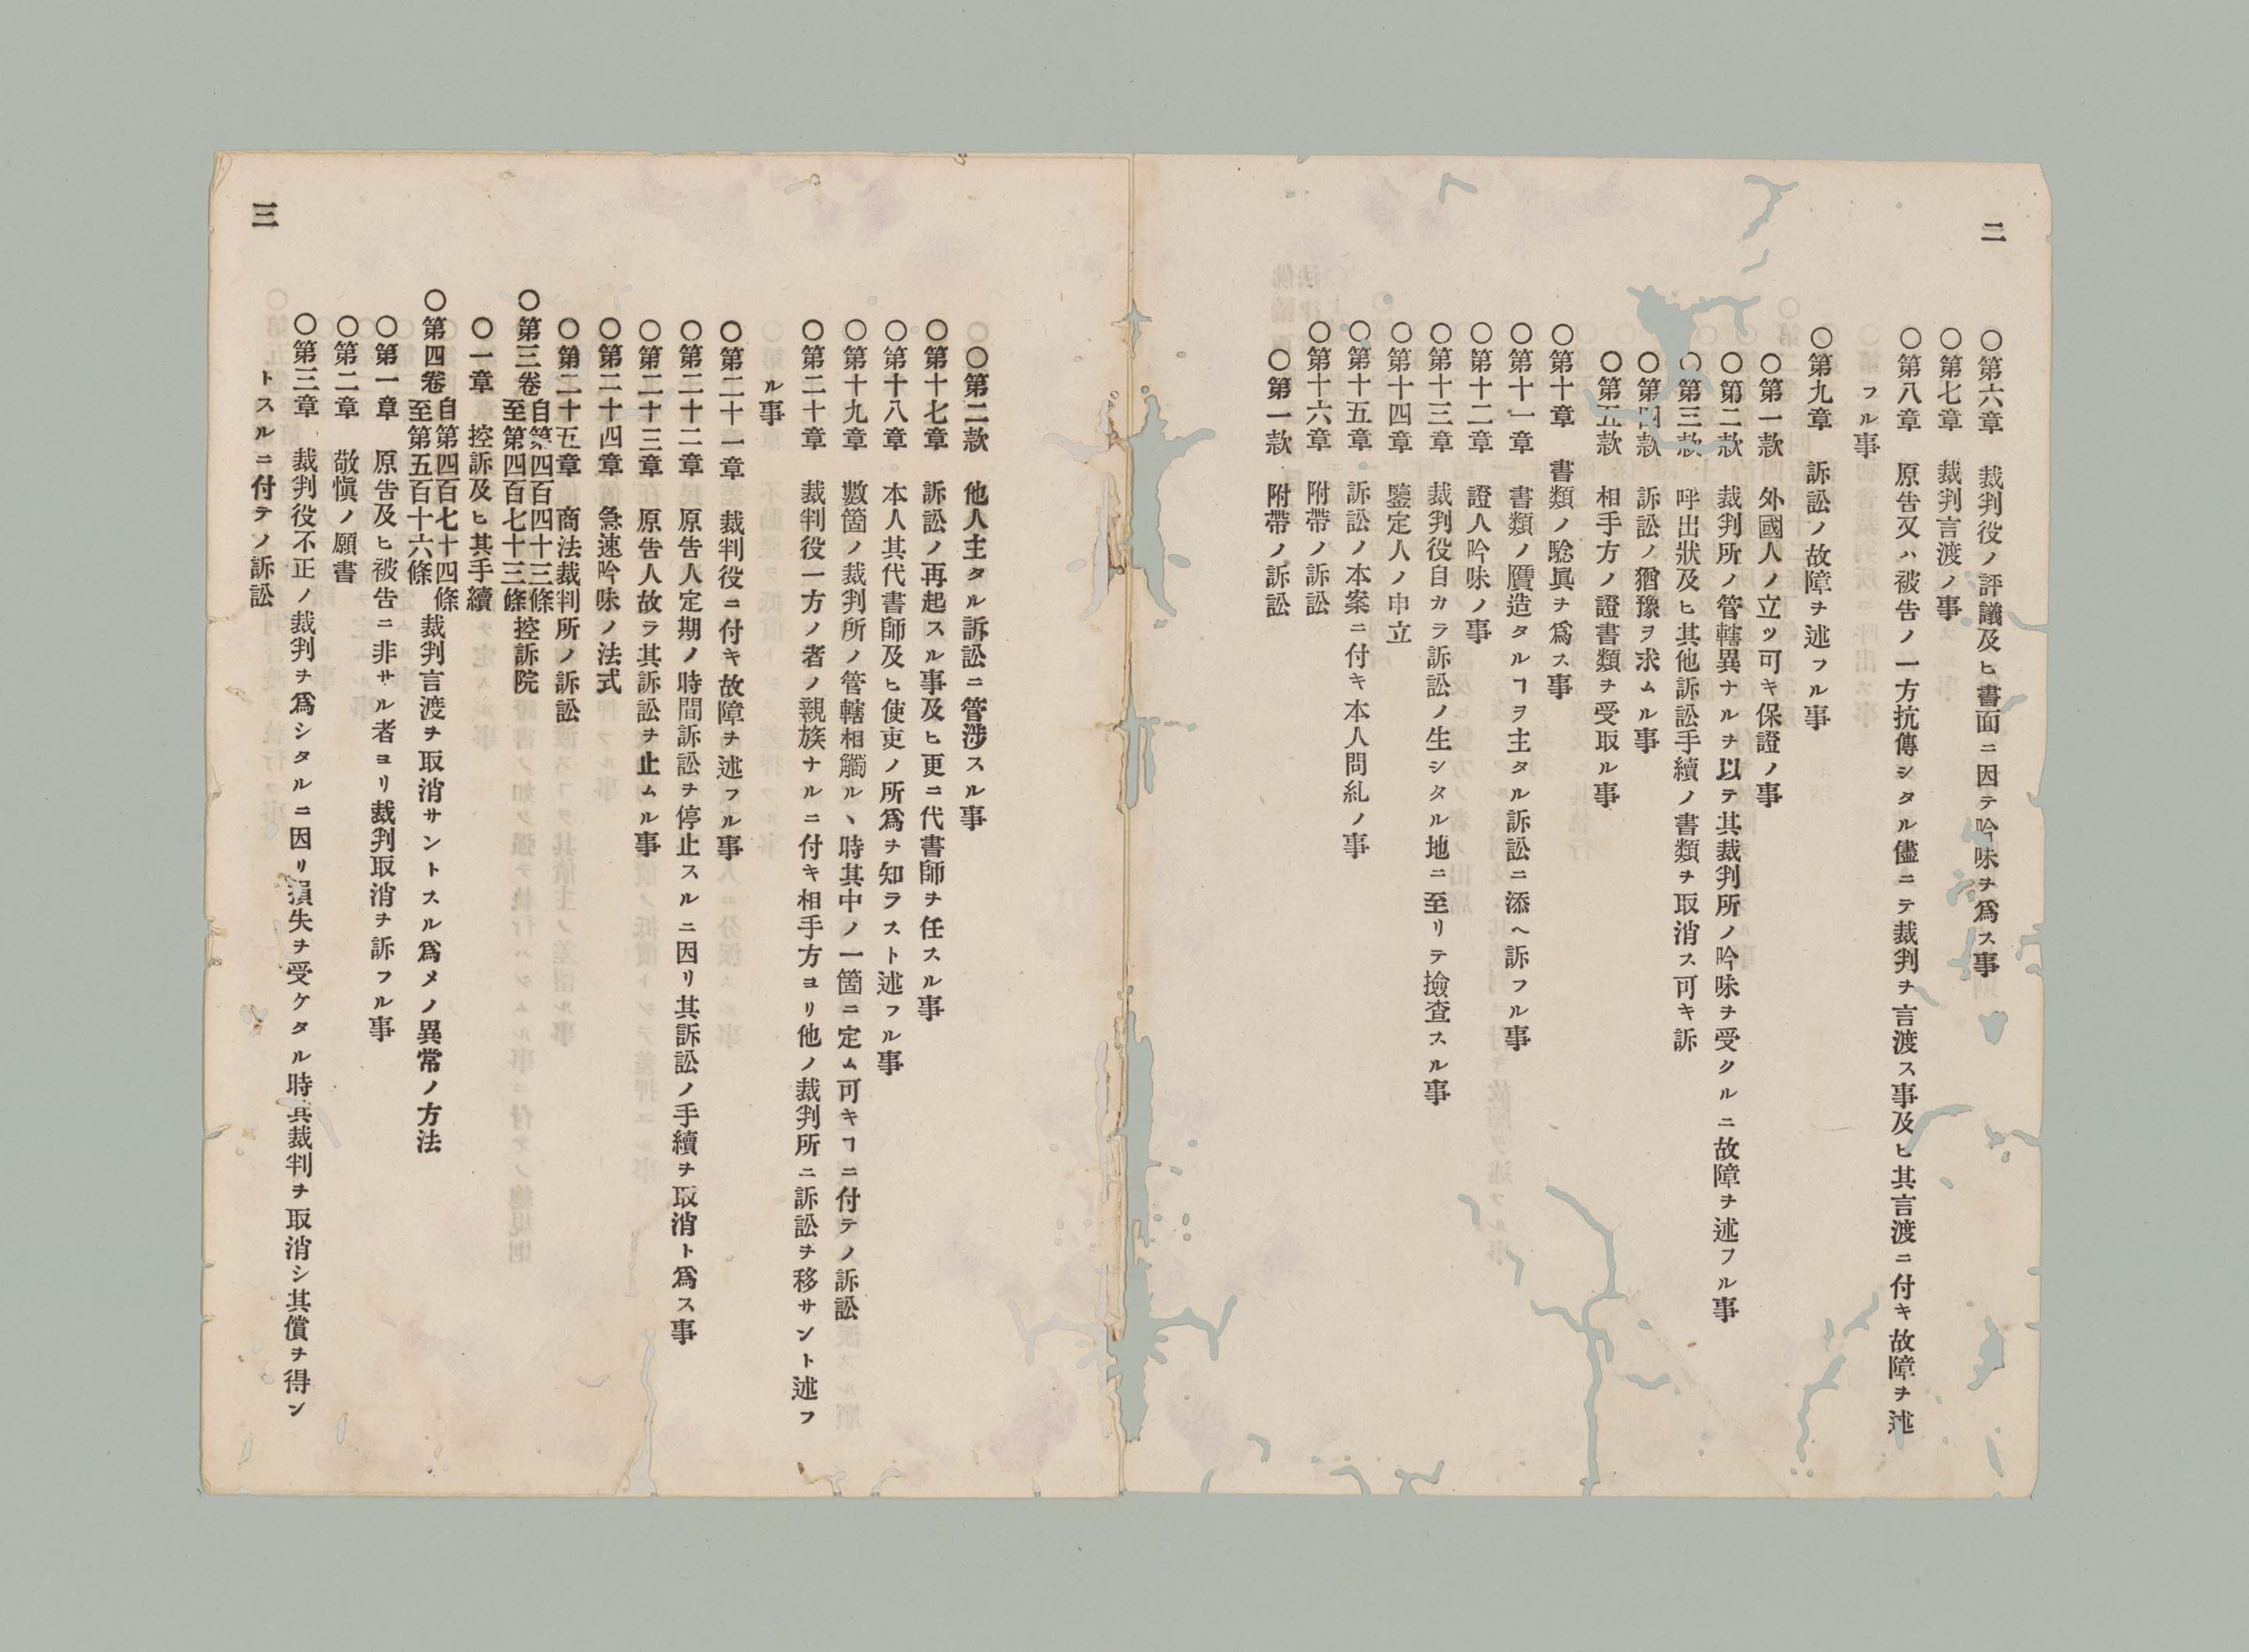 二
〇第六章　裁判役ノ評議及ヒ書面ニ因テ吟味ヲ爲ス事
〇第七章　裁判言渡ノ事
〇第八章　原告又ハ被告ノ一方抗傳シタル儘ニテ裁判ヲ言渡ス事及ヒ其言渡ニ付キ故障ヲ述
フル事
〇第九章　訴訟ノ故障ヲ述フル事
〇第一款　外國人ノ立ツ可キ保證ノ事
〇第二款　裁判所ノ管轄異ナルヲ以テ其裁判所ノ吟味ヲ受クルニ故障ヲ述フル事
〇第三款　呼出狀及ヒ其他訴訟手續ノ書類ヲ取消ス可キ訴
〇第四款　訴訟ノ猶豫ヲ求ムル事
〇第五款　相手方ノ證書類ヲ受取ル事
〇第十章　書類ノ騐眞ヲ爲ス事
〇第十一章　書類ノ贋造タルヿヲ主タル訴訟ニ添ヘ訴フル事
〇第十二章　證人吟味ノ事
〇第十三章　裁判役自カラ訴訟ノ生シタル地ニ至リテ撿査スル事
〇第十四章　鑒定人ノ申立
〇第十五章　訴訟ノ本案ニ付キ本人問糺ノ事
〇第十六章　附帶ノ訴訟
〇第一款　附帶ノ訴訟
〇第二款　他人主タル訴訟ニ管渉スル事
〇第十七章　訴訟ノ再起スル事及ヒ更ニ代書師ヲ任スル事
〇第十八章　本人其代書師及ヒ使吏ノ所爲ヲ知ラスト述フル事
〇第十九章　數箇ノ裁判所ノ管轄相觸ルヽ時其中ノ一箇ニ定ム可キヿニ付テノ訴訟
〇第二十章　裁判役一方ノ者ノ親族ナルニ付キ相手方ヨリ他ノ裁判所ニ訴訟ヲ移サント述フ
ル事
〇第二十一章　裁判役ニ付キ故障ヲ述フル事
〇第二十二章　原告人定期ノ時間訴訟ヲ停止スルニ因リ其訴訟ノ手續ヲ取消ト爲ス事
〇第二十三章　原告人故ラ其訴訟ヲ止ムル事
〇第二十四章　急速吟味ノ法式
〇第二十五章　商法裁判所ノ訴訟
〇第三卷　自第四百四十三條至第四百七十三條　控訴院
〇一章　控訴及ヒ其手續
〇第四卷　自第四百七十四條至第五百十六條　裁判言渡ヲ取消サントスル爲メノ異常ノ方法
〇第一章　原告及ヒ被告ニ非サル者ヨリ裁判取消ヲ訴フル事
〇第二章　敬愼ノ願書
〇第三章　裁判役不正ノ裁判ヲ爲シタルニ因リ損失ヲ受ケタル時其裁判ヲ取消シ其償ヲ得ン
トスルニ付テノ訴訟
三